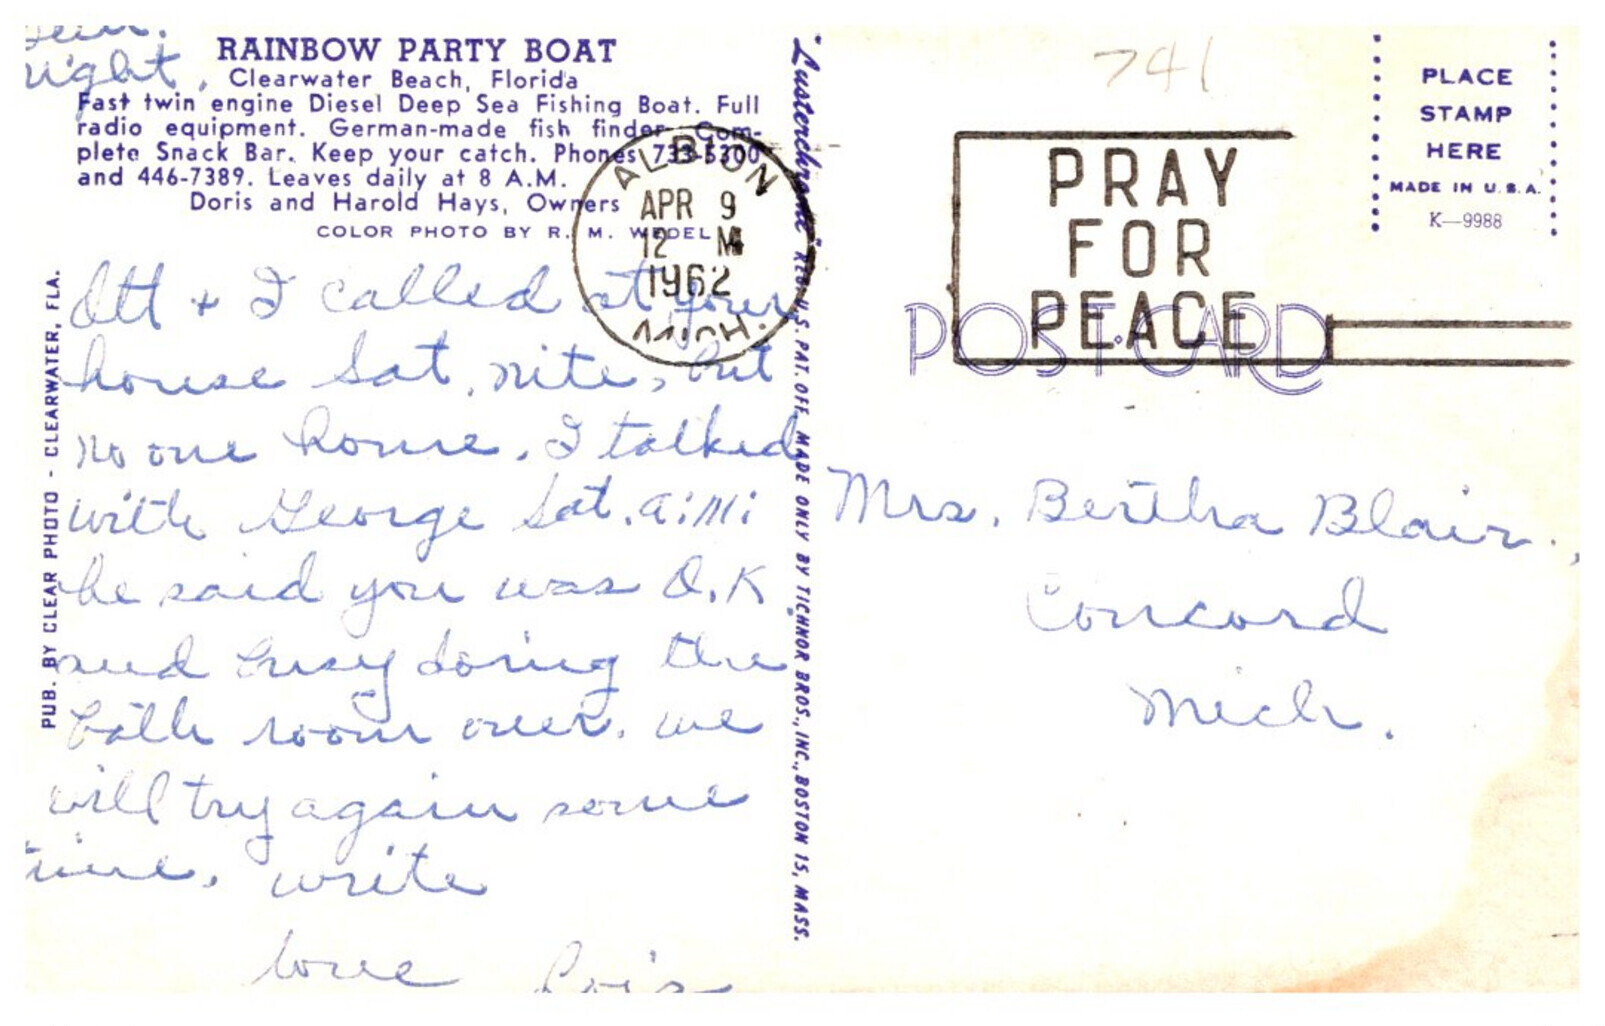 Sun.
night.
RAINBOW PARTY BOAT
Clearwater Beach, Florida
Fast twin engine Diesel Deep Sea Fishing Boat. Full
radio equipment. German-made fish finder. Com-
plete Snack Bar. Keep your catch. Phones 733-5300
and 446-7389. Leaves daily at 8 A.M.
Doris and Harold Hays, Owners
COLOR PHOTO BY R. M. WEDEL
Ott & I called at your
house Sat. nite, but
no one home. I talked
with George Sat. a.m.
he said you was O.K
and busy doing the
bath room over. we
will try again some
time. write
love Lois
PUB. BY CLEAR PHOTO - CLEARWATER, FLA.
"Lusterchrome" REG. U.S PAT. OFF. MADE ONLY BY TICHNOR BROS., INC., BOSTON 15, MASS.
ALBION
APR 9
12 M
1962
MICH.
741
PRAY
FOR
PEACE
PLACE
STAMP
HERE
MADE IN U.S.A.
K-9988
POST CARD
Mrs. Bertha Blair.,
Concord
Mich.